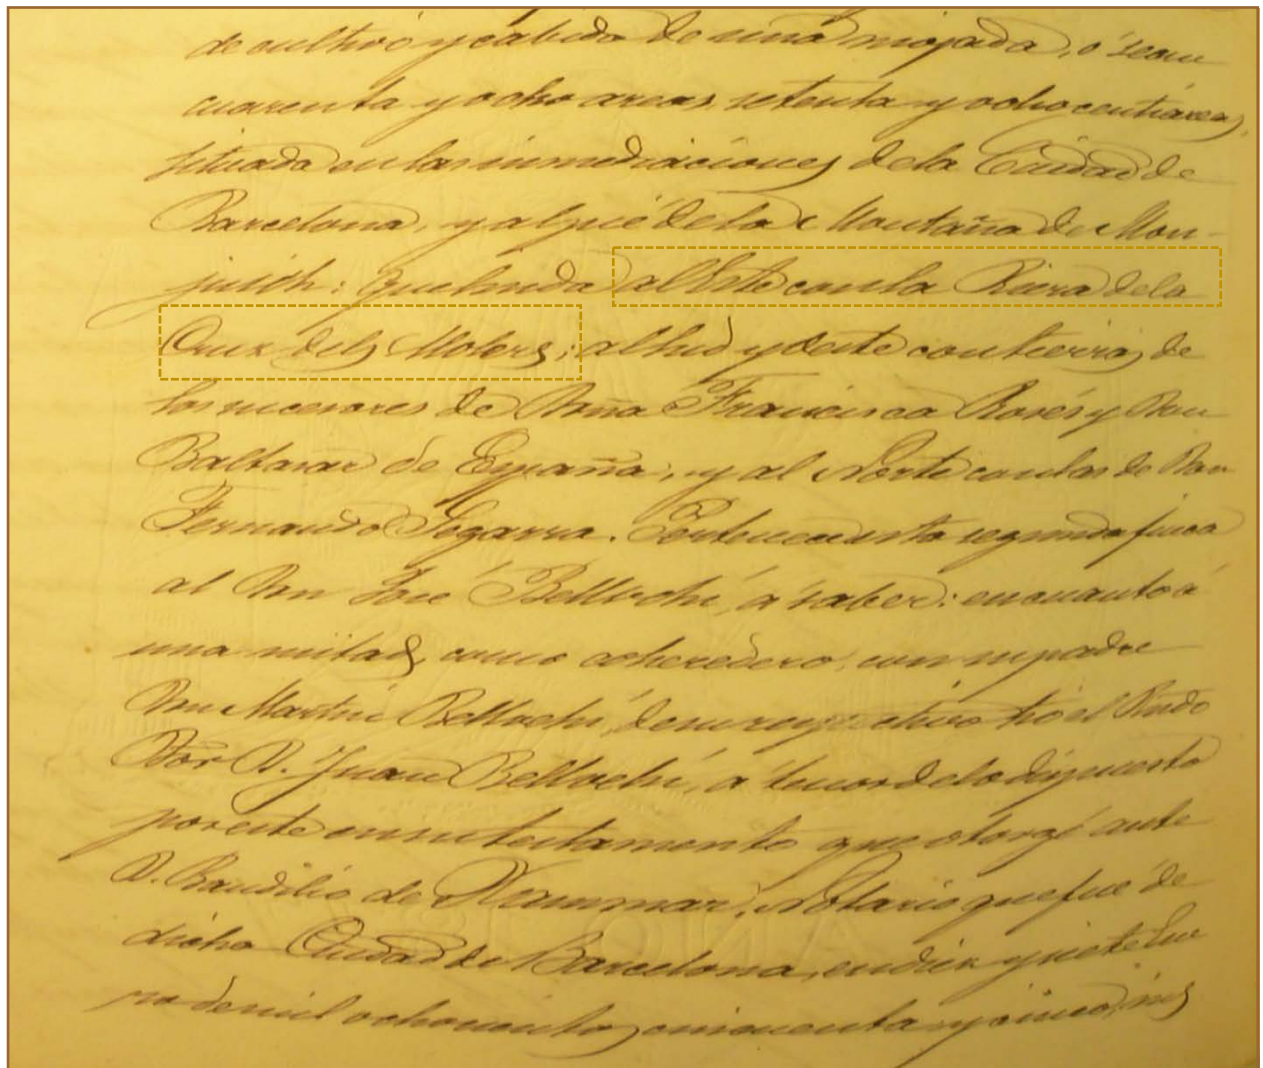 de cultivo y cabida de una mojada, ó sean
cuarenta y ocho areas setenta y ocho centiáreas,
situada en las inmediaciones de la Ciudad de
Barcelona, y al pié de la Montaña de Mon-
juich: que linda al Este con la Riera de la
Cruz dels Molers; al Sud y Oeste con tierras de
los sucesores de Doña Francisca Rosés y Don
Baltasar de España, y al Norte con las de Don
Fernando Segarra. Pertenece esta segunda finca
al Don José Bellvehí, á saber: en cuanto á
una mitad, como coheredero, con su padre
Don Martin Bellvehí, de su respectivo tio el Rndo
D. Juan Bellvehí, á tenor de lo dispuesto
por este en su testamento que otorgó ante
D. Baudilio de Notario que fué de
dicha Ciudad de Barcelona, en diez y siete Ene
ro de mil ochocientos cincuenta y cinco,